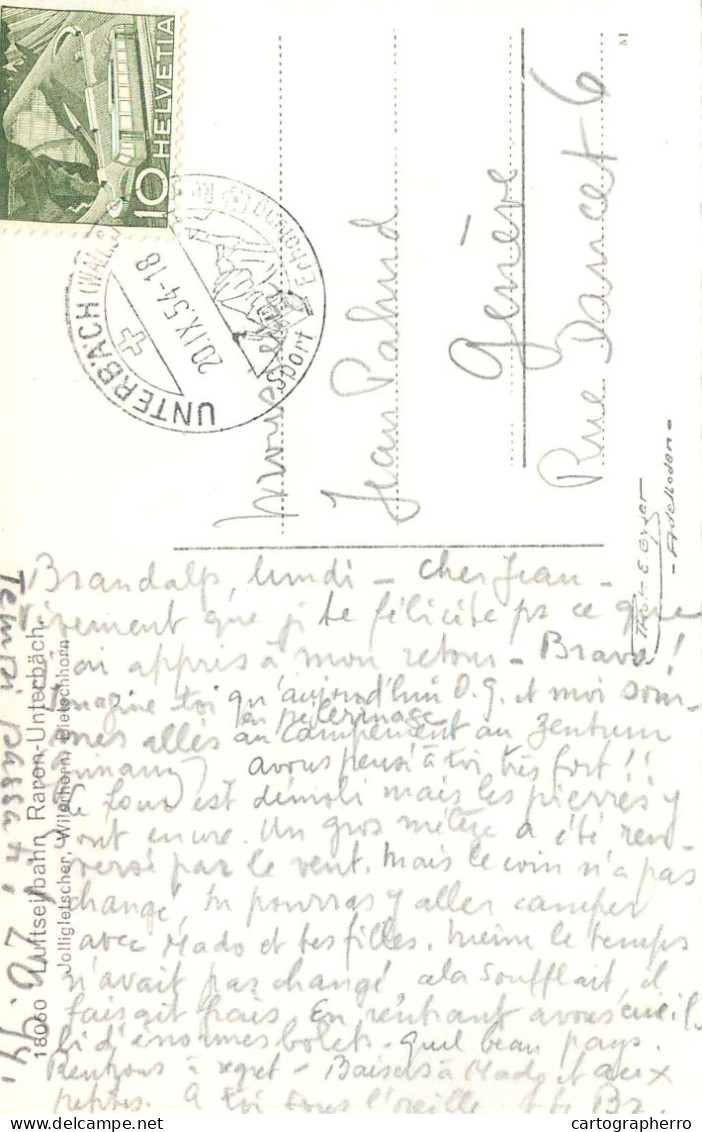 10 HELVETIA
UNTERBÄCH (WALLIS)
20.IX.54-18
Sport
Erholung
Monsieur
Jean Pahud
Genève
Rue Dancet 6
51
Phot. E. Gyger
- Adelboden -
Brandalp, lundi - cher Jean -
Vivement que je te félicite pr ce que
j'ai appris à mon retour - Bravo!
Imagine-toi qu'aujourd'hui O.G. et moi som-
mes allés en pélerinage au campement au Zentrum
avons pensé à toi très fort!!
Le four est démoli mais les pierres y
sont encore. Un gros mélèze a été ren-
versé par le vent. Mais le coin n'a pas
changé, tu pourras y aller camper
avec Mado et tes filles. Même le temps
n'avait pas changé cela soufflait, il
faisait frais. En rentrant avons cueil-
li d'énormes bolets. Quel beau pays.
Rentrons à regret - Baisers à Mado et aux
petites. A toi sous l'oreille
18060 Luftseilbahn Raron-Unterbäch.
Jolligletscher, Wilerhorn, Bietschhorn
cartographerro